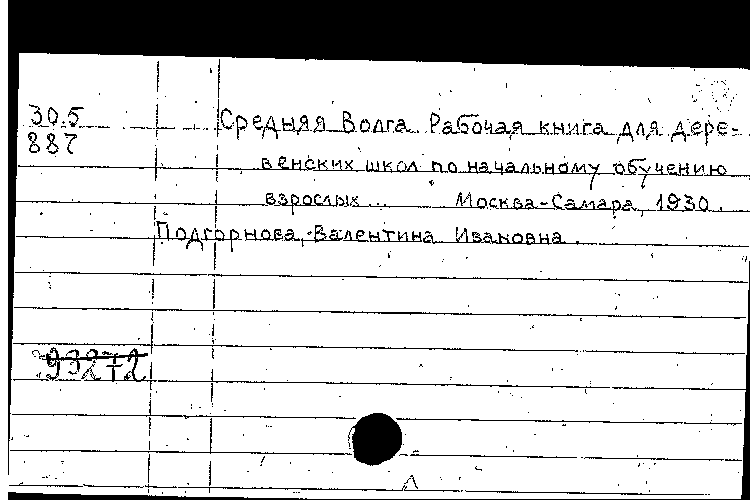 30.5
887
Средняя Волга. Рабочая книга для дере-
венских школ по начальному обучению
взрослых ... Москва-Самара, 1930.
Подгорнова, Валентина Ивановна.
93272